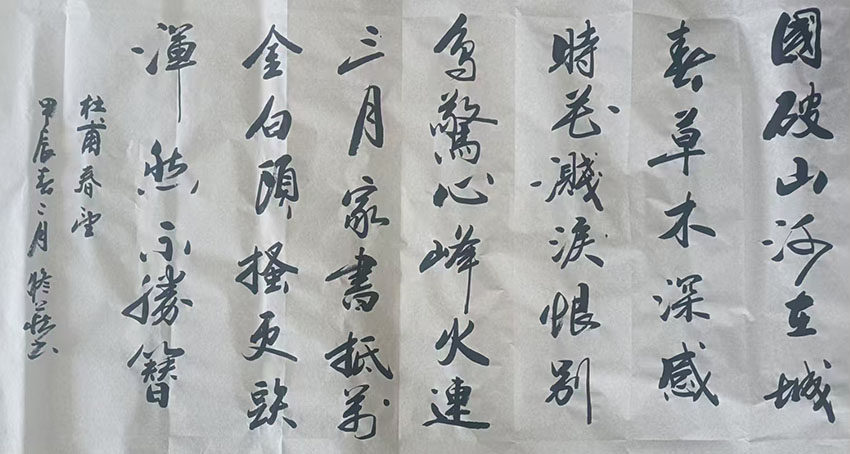 國破山河在城
春草木深感
時花濺淚恨別
鳥驚心峰火連
三月家書抵萬
金白頭搔更短
渾然不勝簪
杜甫春望
甲辰春二月